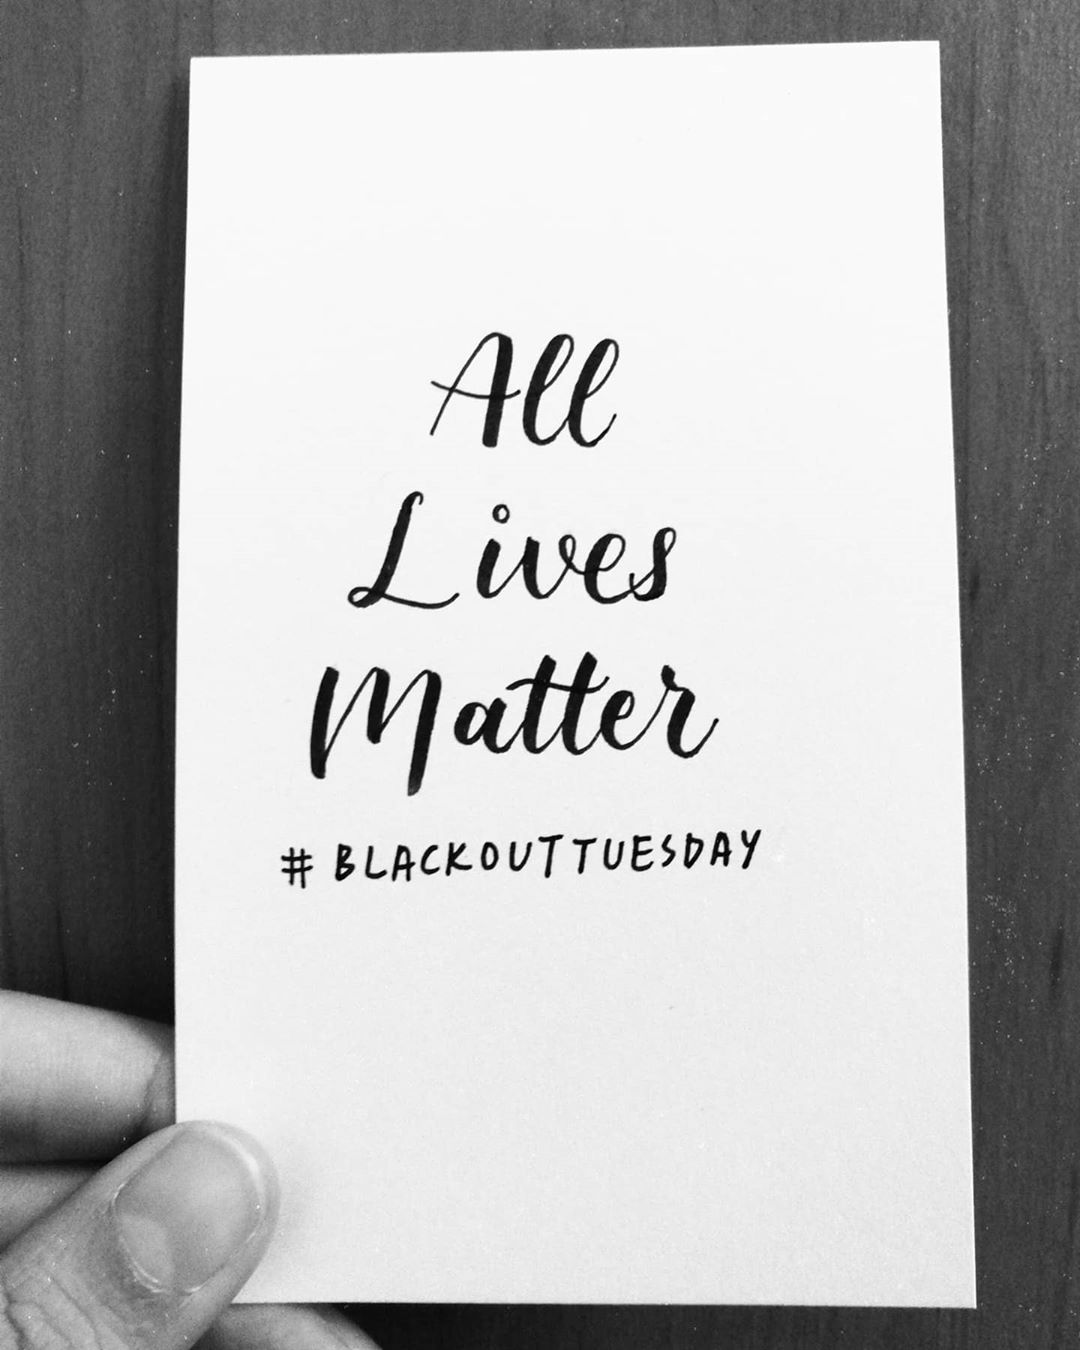 All
Lives
Matter
# BLACKOUTTUESDAY